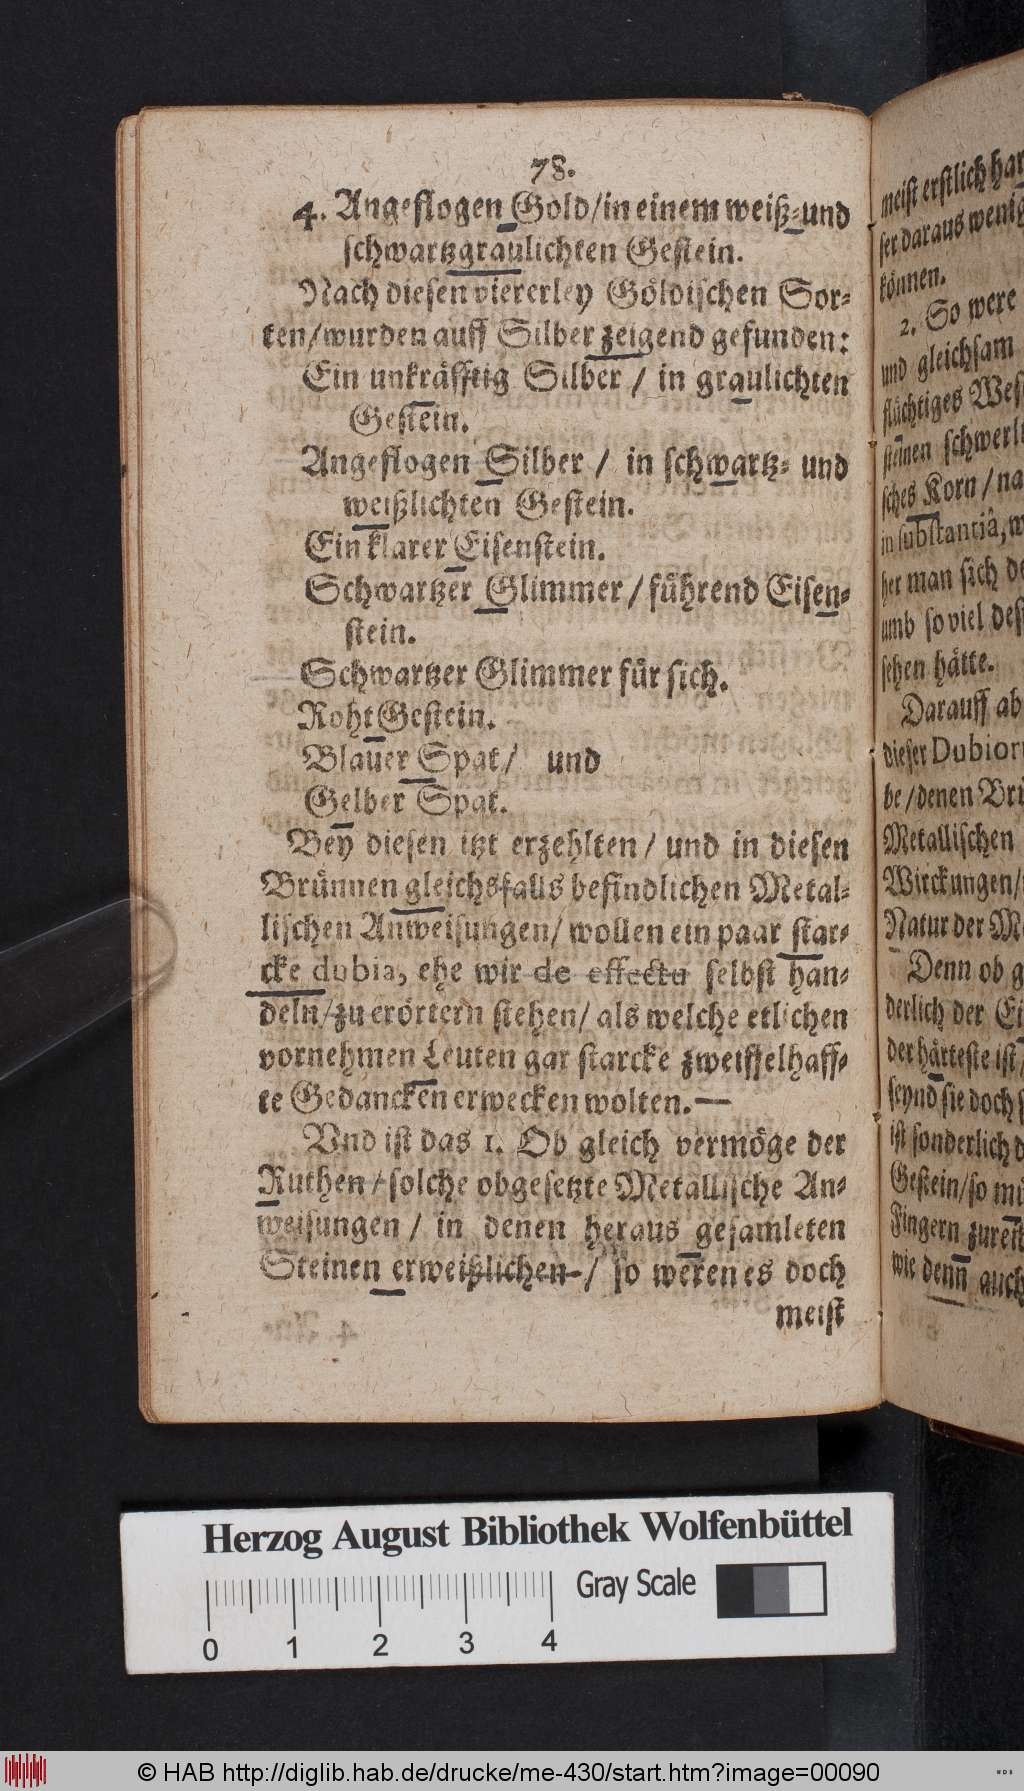 78.
4. Angeflogen Gold/in einem weiß-und
schwartzgraulichten Gestein.
Nach diesen viererley Göldischen Sor-
ten/wurden auff Silber zeigend gefunden:
Ein unkräfftig Silber / in graulichten
Gestein.
Angeflogen Silber / in schwartz- und
weißlichten Gestein.
Ein klarer Eisenstein.
Schwartzer Glimmer / führend Eisen-
stein.
Schwartzer Glimmer für sich.
Roht Gestein.
Blauer Spat / und
Gelber Spat.
Bey diesen itzt erzehlten / und in diesen
Brünnen gleichsfalls befindlichen Metal-
lischen Anweisungen/ wollen ein paar star-
cke dubia, ehe wir de effectu selbst han-
deln/zu erörtern stehen/ als welche etlichen
vornehmen Leuten gar starcke zweiffelhaff-
te Gedancken erwecken wolten.—
Vnd ist das 1. Ob gleich vermöge der
Ruthen / solche obgesetzte Metallische An-
weisungen / in denen heraus gesamleten
Steinen erweißlichen / so weren es doch
meist
meist erstlich har
ser daraus wenig
können.
2. So were
und gleichsam
flüchtiges Wes
steinen schwerl
sches Korn / na
in substantiâ, w
her man sich de
umb so viel des
sehen hätte.
Darauff ab
dieser Dubior
be / denen Bri
Metallischen
Wirckungen/
Natur der Me
Denn ob g
derlich der Ei
der härteste ist/
seynd sie doch s
ist sonderlich d
Gestein/so mü
Fingern zureit
wie denn auch
Herzog August Bibliothek Wolfenbüttel
Gray Scale
0 1 2 3 4
© HAB http://diglib.hab.de/drucke/me-430/start.htm?image=00090